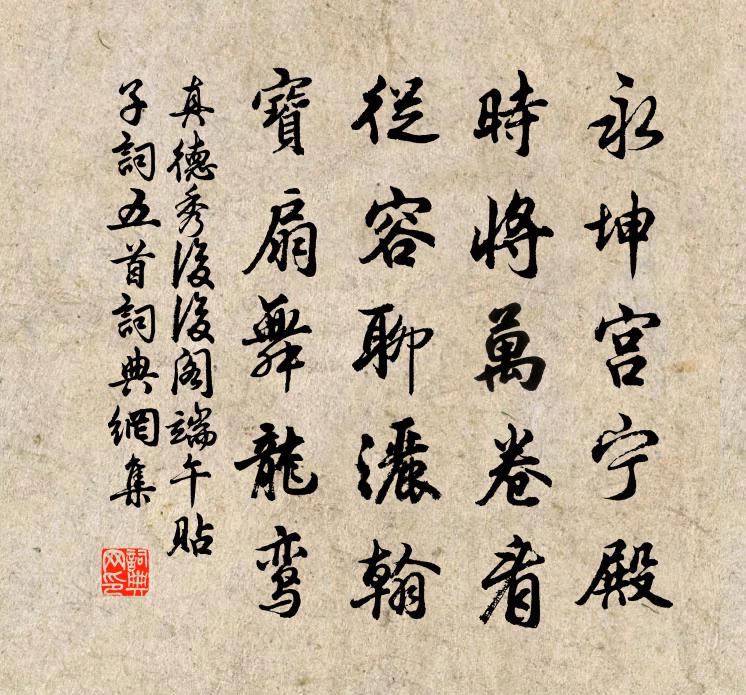 永坤宫宁殿
時將萬卷看
從容聊灑翰
寶扇舞龍鸾
真德秀後後阁端午贴
子詞五首詞典網集
詞典
网印